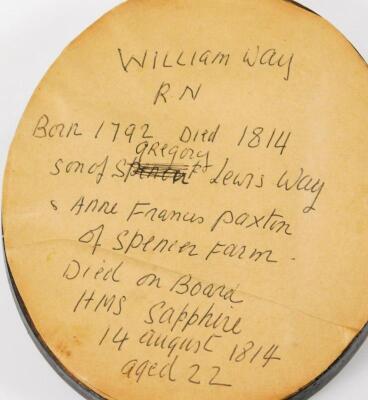 William Way
R N
Born 1792 Died 1814
Gregory
son of Lewis Way
& Anne Francis Paxton
of Spencer Farm.
Died on Board
HMS Sapphire
14 August 1814
aged 22